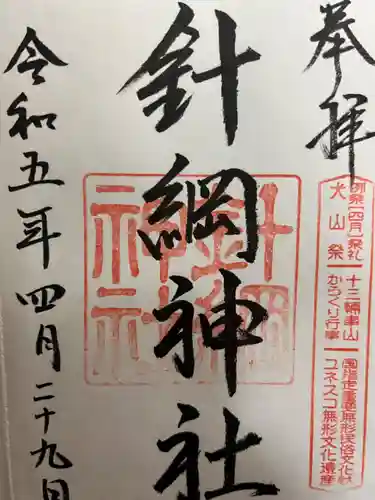 奉拝
例祭[四月]祭礼
犬山祭
十三輛車山
からくり行事
国指定重要無形民俗文化財
ユネスコ無形文化遺産
針綱神社
針綱神社
令和五年四月二十九日